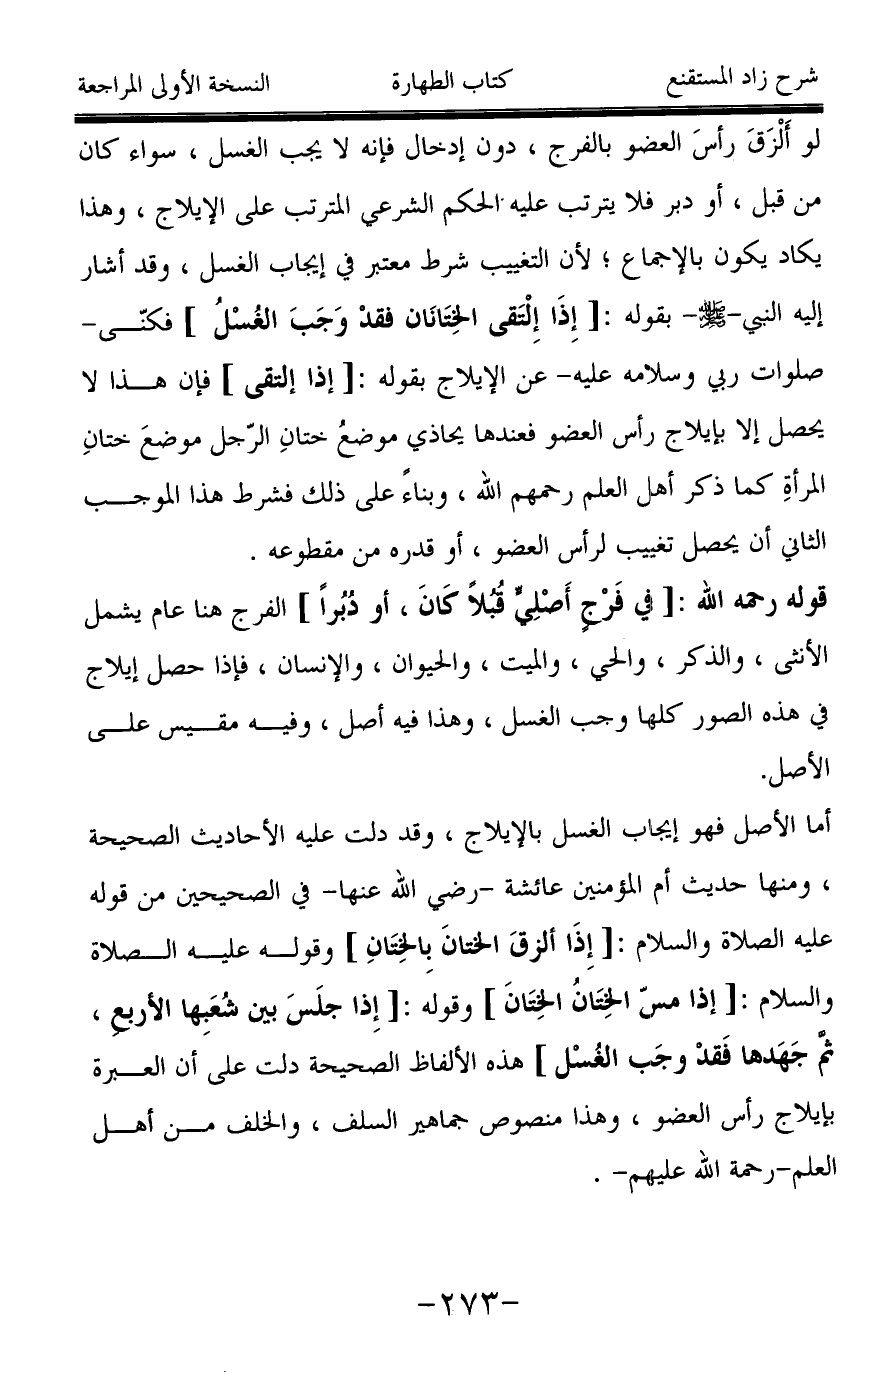 شرح زاد المستقنع كتاب الطهارة النسخة الأولى المراجعة
لو أَلْزَقَ رأسَ العضو بالفرج ، دون إدخال فإنه لا يجب الغسل ، سواء كان
من قبل ، أو دبر فلا يترتب عليه الحكم الشرعي المترتب على الإيلاج ، وهذا
يكاد يكون بالإجماع ؛ لأن التغييب شرط معتبر في إيجاب الغسل ، وقد أشار
إليه النبي-ﷺ- بقوله :[ إِذَا إِلْتَقى الخِتَانَان فقدْ وَجَبَ الغُسْلُ ] فكنّـــى-
صلوات ربي وسلامه عليه- عن الإيلاج بقوله :[ إذا إلتقى ] فإن هـــذا لا
يحصل إلا بإيلاج رأس العضو فعندها يحاذي موضعُ ختانِ الرّجل موضعَ ختانِ
المرأةِ كما ذكر أهل العلم رحمهم الله ، وبناءً على ذلك فشرط هذا الموجـــب
الثاني أن يحصل تغييب لرأس العضو ، أو قدره من مقطوعه .
قوله رحمه الله :[ في فَرْجٍ أَصْلِيٍّ قُبُلاً كَانَ ، أو دُبُراً ] الفرج هنا عام يشمل
الأنثى ، والذكر ، والحي ، والميت ، والحيوان ، والإنسان ، فإذا حصل إيلاج
في هذه الصور كلها وجب الغسل ، وهذا فيه أصل ، وفيـــه مقـــيس علـــى
الأصل.
أما الأصل فهو إيجاب الغسل بالإيلاج ، وقد دلت عليه الأحاديث الصحيحة
، ومنها حديث أم المؤمنين عائشة -رضي الله عنها- في الصحيحين من قوله
عليه الصلاة والسلام :[ إِذَا ألزقَ الختانَ بِالخِتَانِ ] وقولـــه عليـــه الـــصلاة
والسلام :[ إذا مسّ الخِتَانُ الخِتَانَ ] وقوله :[ إِذا جلَسَ بين شُعَبِها الأربعِ ،
ثمَّ جَهَدها فَقدْ وجَب الغُسْل ] هذه الألفاظ الصحيحة دلت على أن العـــبرة
بإيلاج رأس العضو ، وهذا منصوص جماهير السلف ، والخلف مـــن أهـــل
العلم-رحمة الله عليهم- .
-٢٧٣-